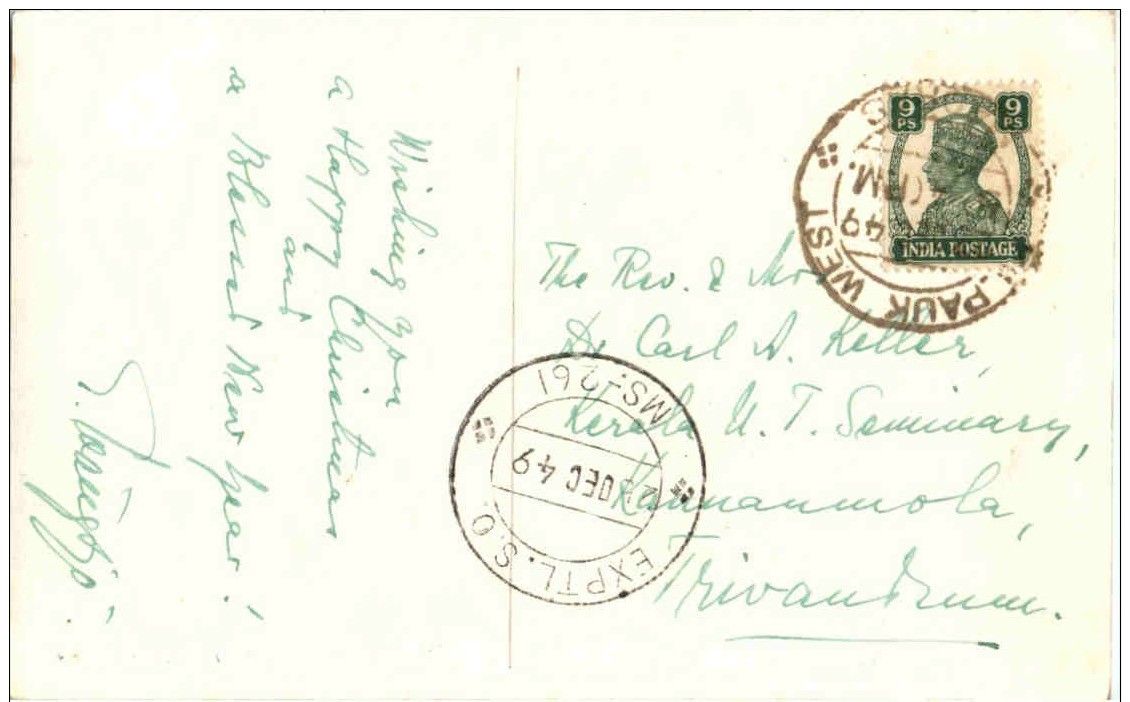 Wishing you
a Happy Christmas
and
a Blessed New Year!
9
PS
9
PS
INDIA POSTAGE
PAUK WEST
49
The Rev. & Mrs
Dr Carl A. Keller,
Kerala U. T. Seminary,
Kannanmola,
Trivandrum.
EXPTL. S.O.
MS-261
DEC 49